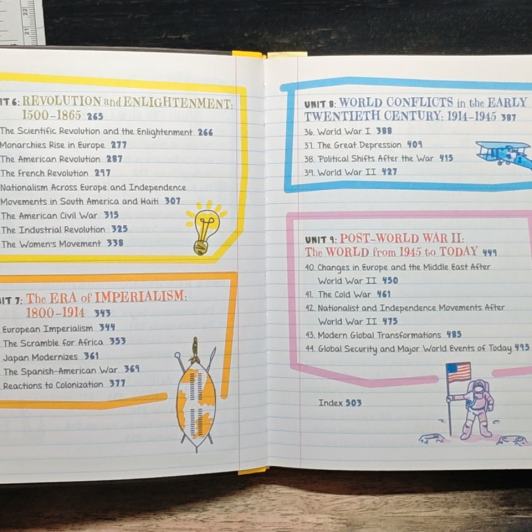 IT 6: REVOLUTION and ENLIGHTENMENT:
1500–1865 265
The Scientific Revolution and the Enlightenment 266
Monarchies Rise in Europe 277
The American Revolution 287
The French Revolution 297
Nationalism Across Europe and Independence
Movements in South America and Haiti 307
The American Civil War 315
The Industrial Revolution 325
The Women's Movement 338
IT 7: The ERA of IMPERIALISM:
1800–1914 343
European Imperialism 344
The Scramble for Africa 353
Japan Modernizes 361
The Spanish-American War 369
Reactions to Colonization 377
UNIT 8: WORLD CONFLICTS in the EARLY
TWENTIETH CENTURY: 1914–1945 387
36. World War I 388
37. The Great Depression 409
38. Political Shifts After the War 415
39. World War II 427
UNIT 9: POST-WORLD WAR II:
The WORLD from 1945 to TODAY 449
40. Changes in Europe and the Middle East After
World War II 450
41. The Cold War 461
42. Nationalist and Independence Movements After
World War II 475
43. Modern Global Transformations 485
44. Global Security and Major World Events of Today 495
Index 503